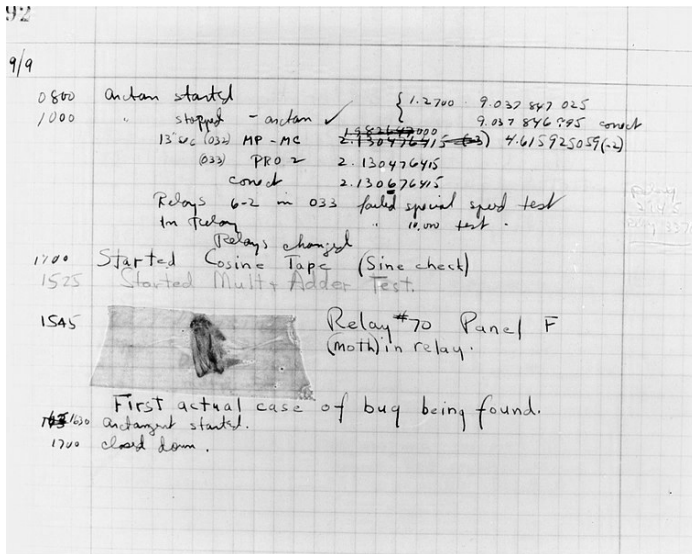 92
9/9
0800 arctan started { 1.2700 9.037 847 025
1000 " stopped - arctan ✓ 9.037 846 995 correct
13" uc (032) MP - MC 1.982647000 2.130476415 (-3) 4.615925059 (-2)
(033) PRO 2 2.130476415
correct 2.130676415
Relays 6-2 in 033 failed special speed test
In Relay " 10,000 test .
Relays changed
1700 Started Cosine Tape (Sine check)
1525 Started Mult + Adder Test.
1545 Relay #70 Panel F
(moth) in relay.
First actual case of bug being found.
1630 arctangent started.
1700 closed down .